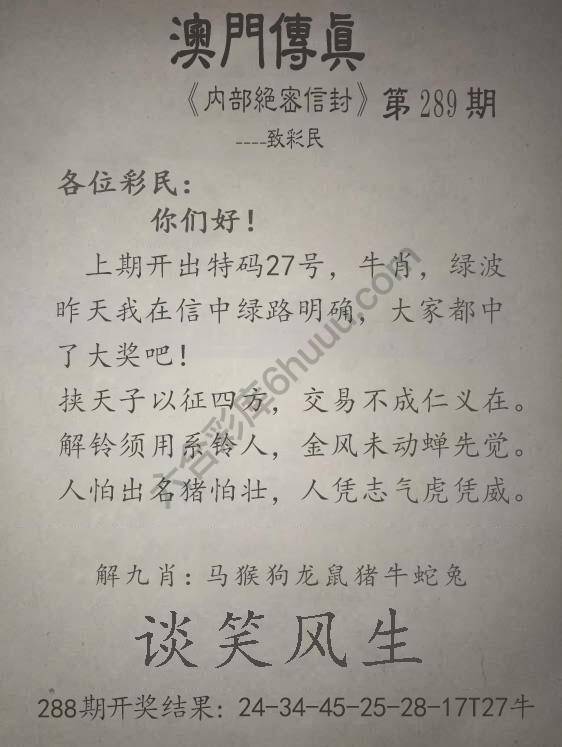 澳門傳眞
《内部絕密信封》第289期
----致彩民
各位彩民：
你们好！
上期开出特码27号，牛肖，绿波
昨天我在信中绿路明确，大家都中
了大奖吧！
挟天子以征四方，交易不成仁义在。
解铃须用系铃人，金风未动蝉先觉。
人怕出名猪怕壮，人凭志气虎凭威。
解九肖：马猴狗龙鼠猪牛蛇兔
谈笑风生
288期开奖结果：24-34-45-25-28-17T27牛
六合彩库6huuu.com